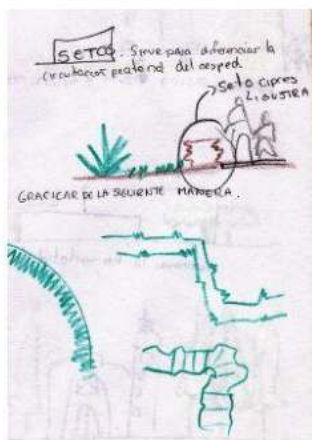 SETOS. Sirve para diferenciar la
circulación peatonal del cesped.
Seto cipres
LIGUSTRA
GRAFICAR DE LA SEGUIENTE MANERA.